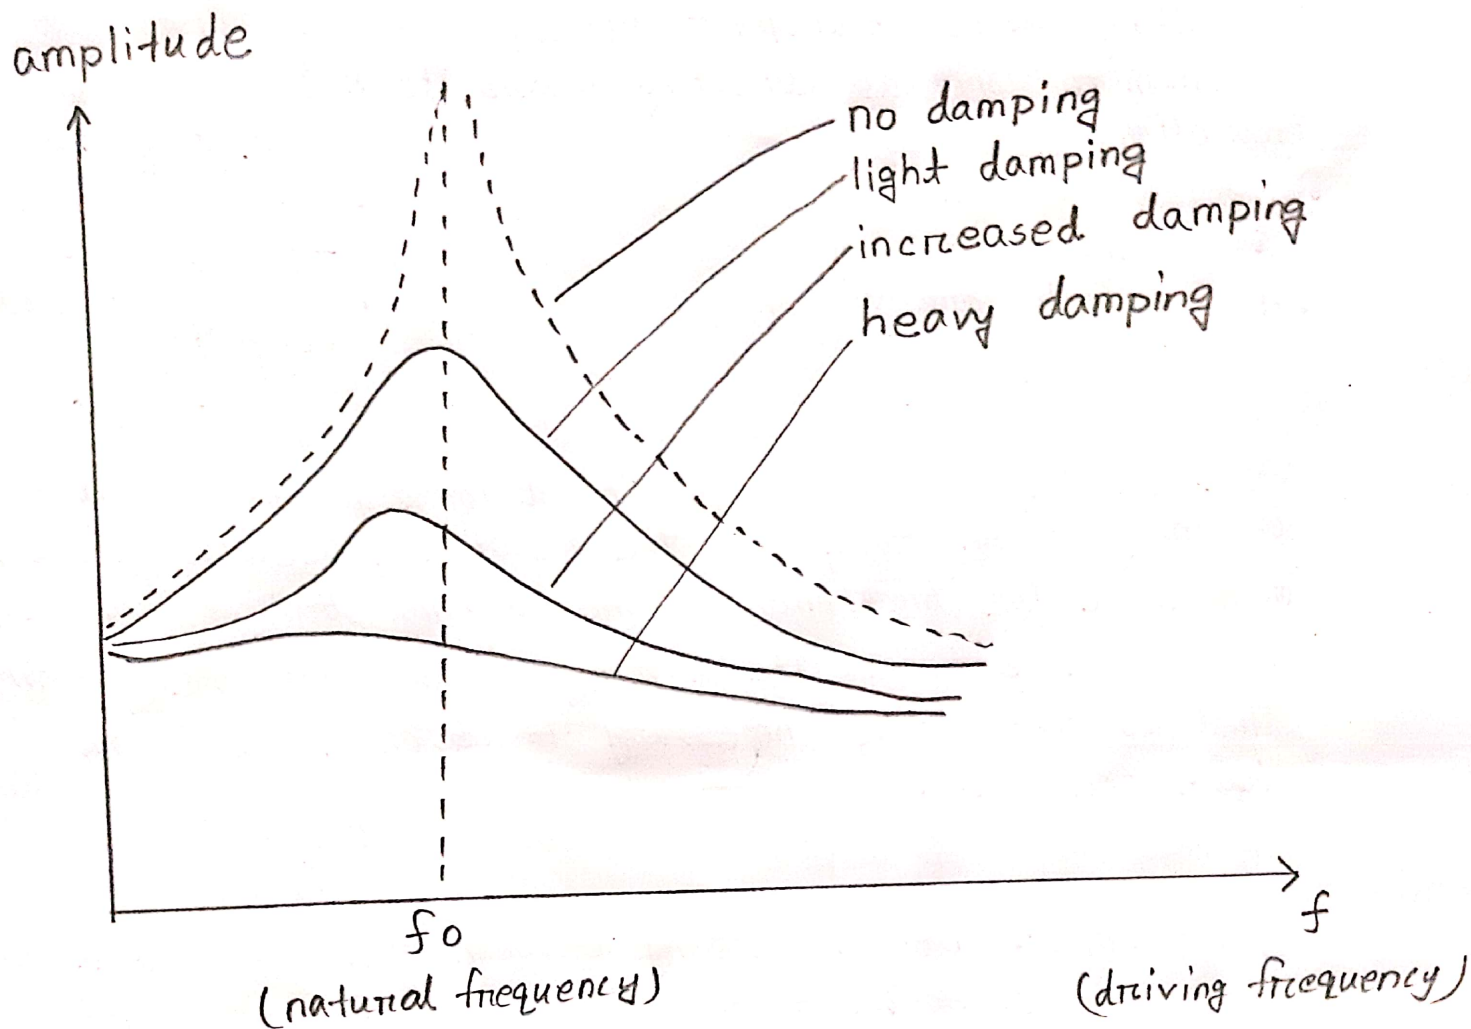 amplitude
no damping
light damping
increased damping
heavy damping
fo
f
(natural frequency)
(driving frequency)